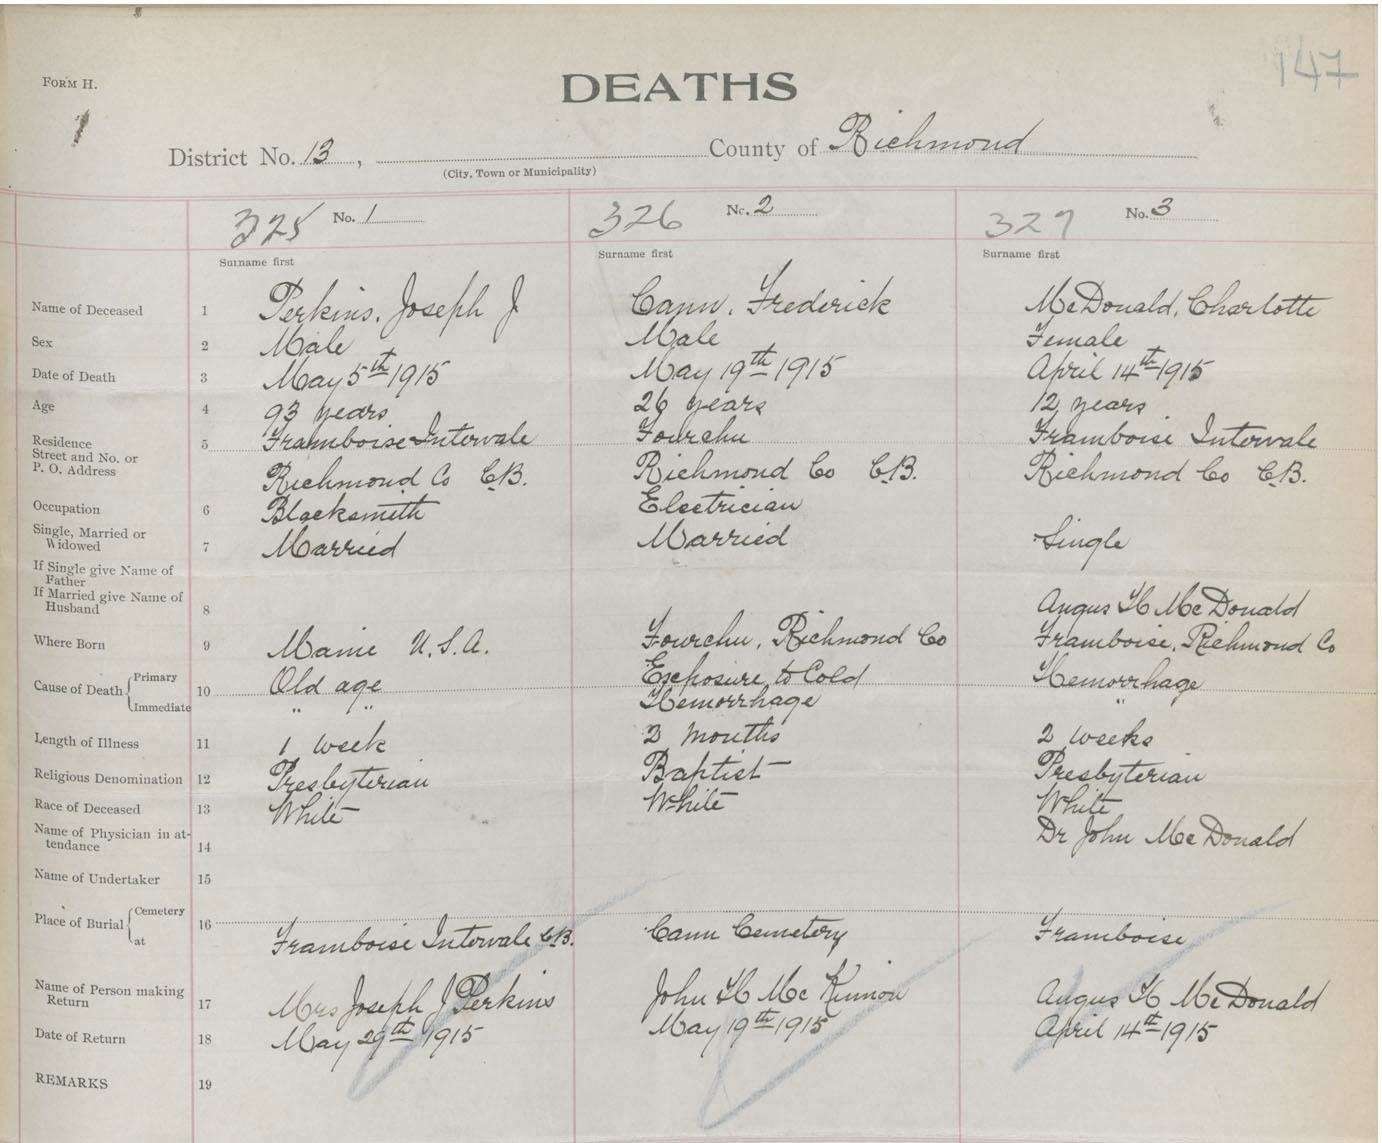 147
FORM H.
DEATHS
1
District No. 13, County of Richmond
(City, Town or Municipality)
325 No. 1 326 No. 2 327 No. 3
Surname first Surname first Surname first
Name of Deceased 1 Perkins, Joseph J Cann, Frederick McDonald, Charlotte
Sex 2 Male Male Female
Date of Death 3 May 5th 1915 May 19th 1915 April 14th 1915
Age 4 93 years 26 years 12 years
Residence 5 Framboise Intervale Fourchu Framboise Intervale
Street and No. or
P. O. Address Richmond Co C.B. Richmond Co C.B. Richmond Co C.B.
Occupation 6 Blacksmith Electrician
Single, Married or
Widowed 7 Married Married Single
If Single give Name of
Father
If Married give Name of
Husband 8 Angus H McDonald
Where Born 9 Maine U.S.A. Fourchu, Richmond Co Framboise, Richmond Co
Cause of Death { Primary 10 Old age Exposure to Cold Hemorrhage
Immediate " " Hemorrhage "
Length of Illness 11 1 week 2 months 2 weeks
Religious Denomination 12 Presbyterian Baptist Presbyterian
Race of Deceased 13 White White White
Name of Physician in at-
tendance 14 Dr John McDonald
Name of Undertaker 15
Place of Burial { Cemetery 16
at Framboise Intervale C.B. Cann Cemetery Framboise
Name of Person making
Return 17 Mrs Joseph J Perkins John H McKinnon Angus H McDonald
Date of Return 18 May 29th 1915 May 19th 1915 April 14th 1915
REMARKS 19